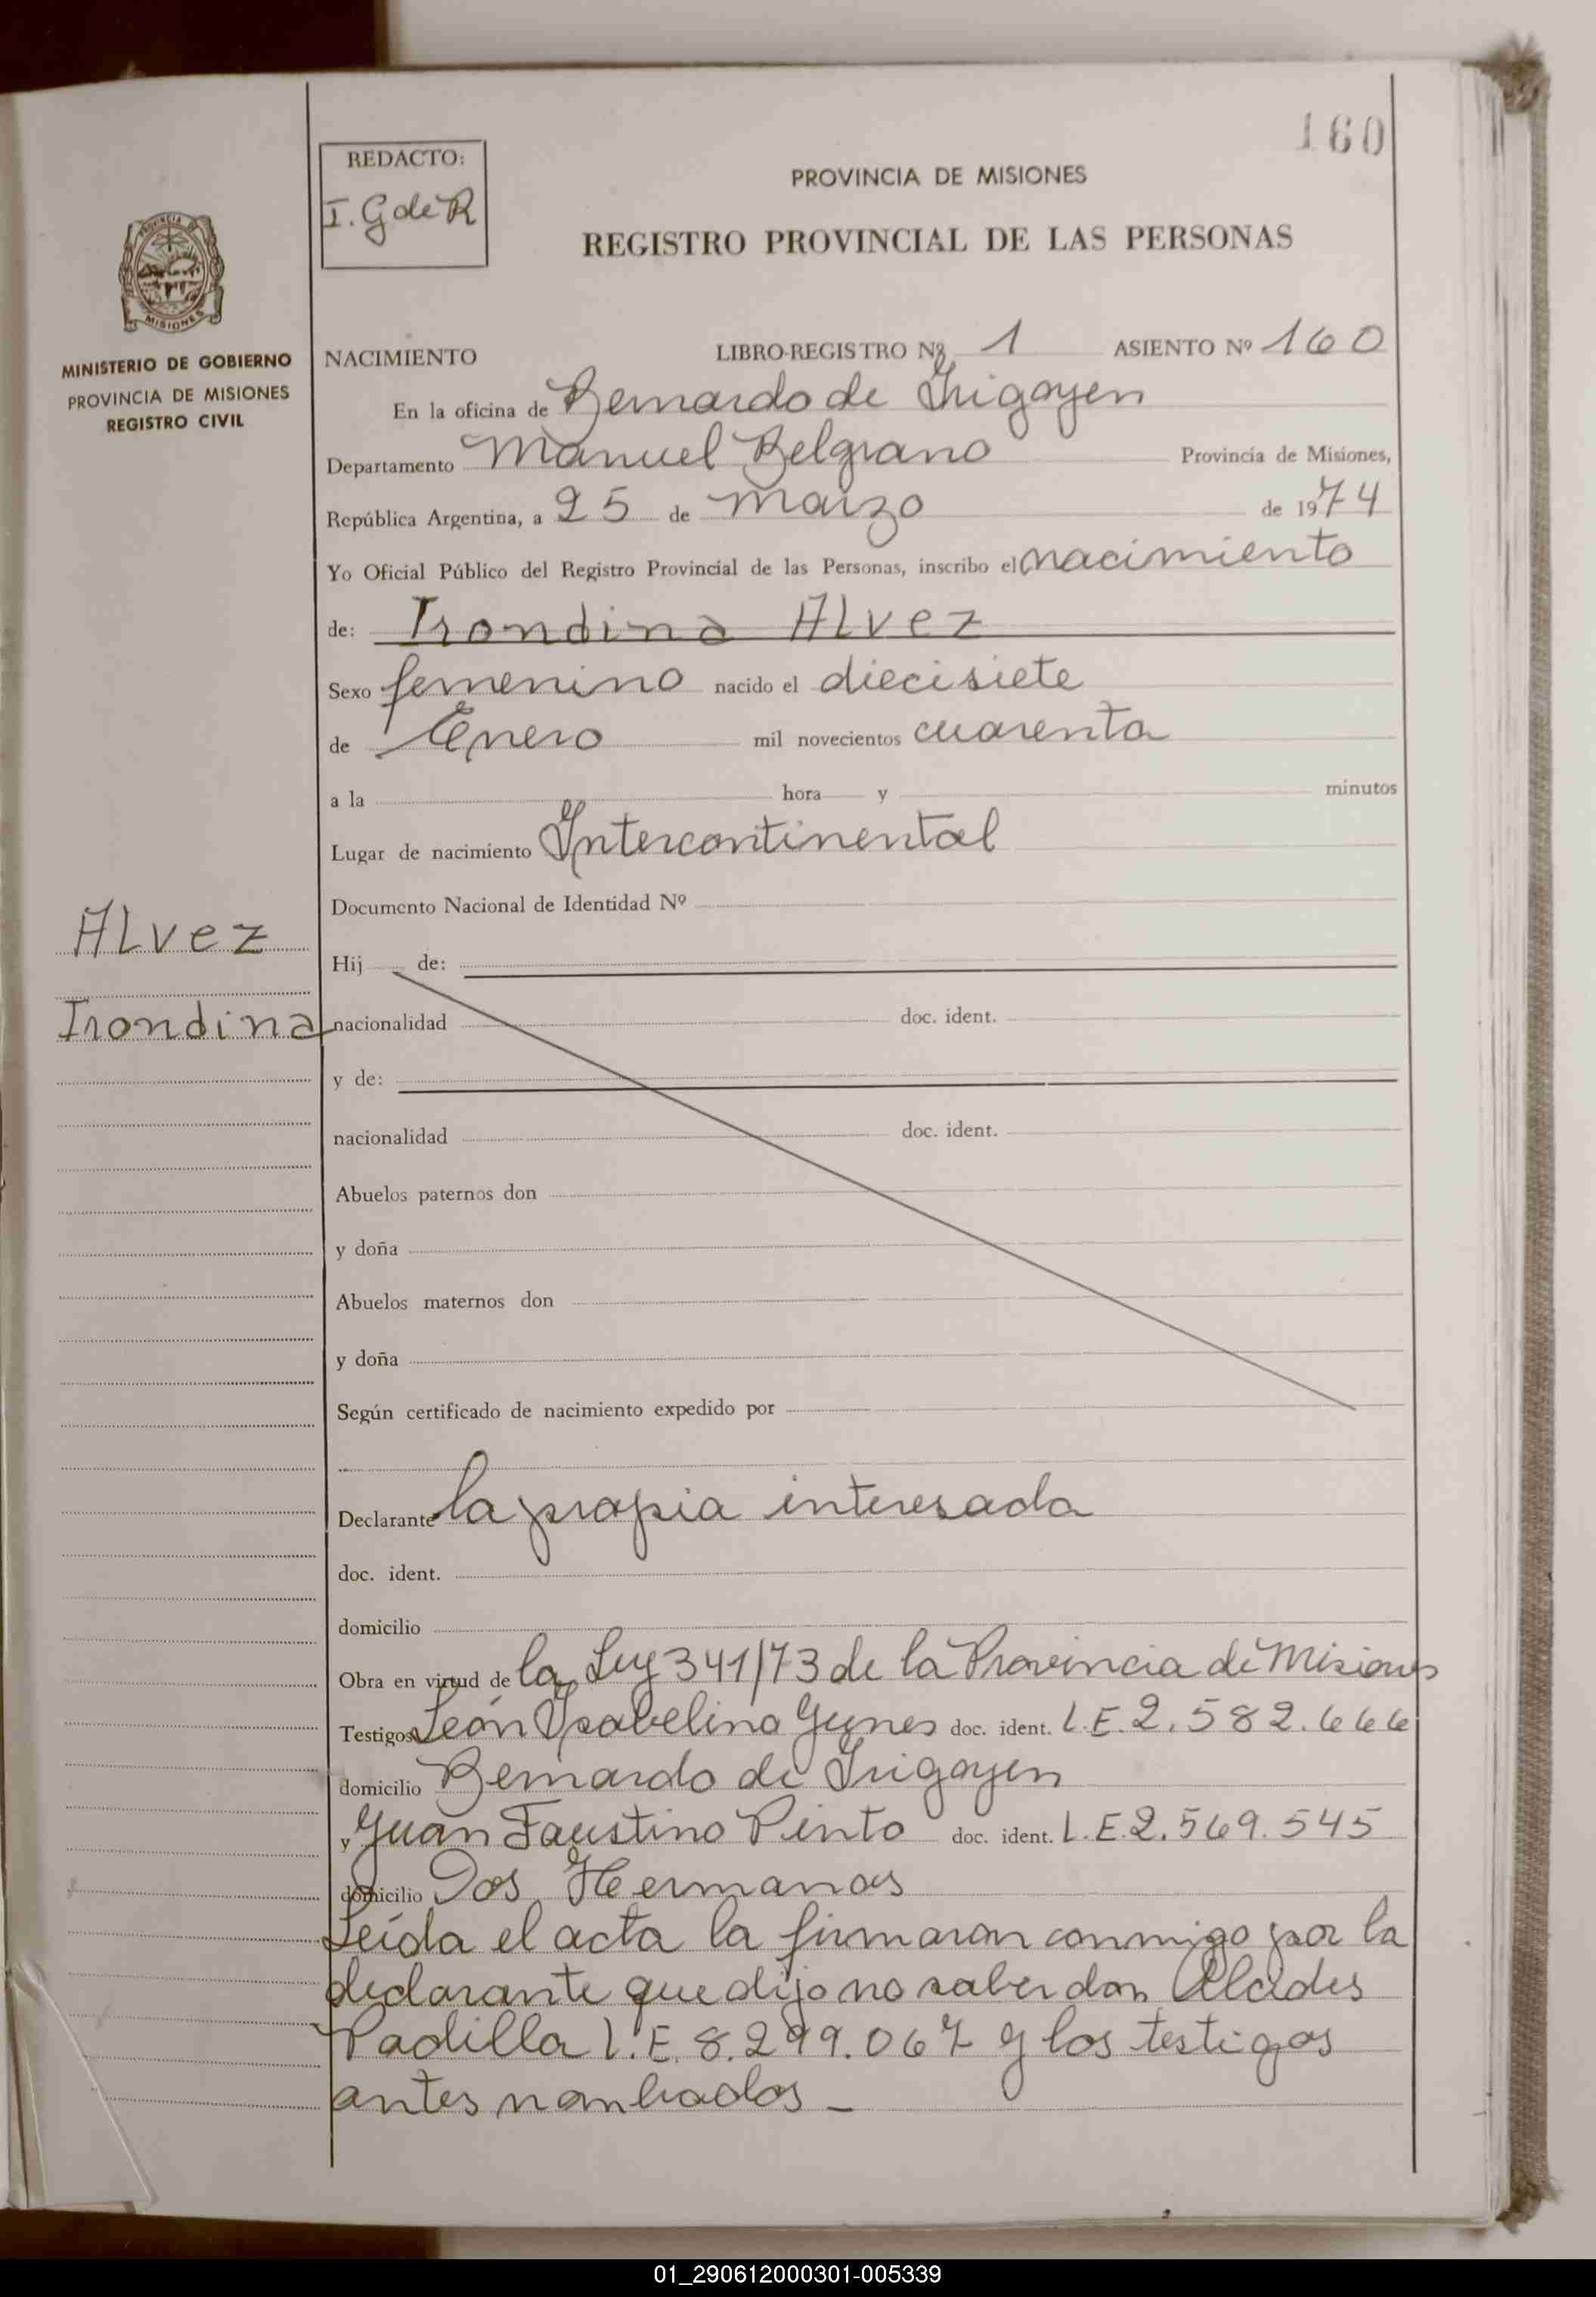 160
REDACTO:
I. G de R
PROVINCIA DE MISIONES
REGISTRO PROVINCIAL DE LAS PERSONAS
PROVINCIA DE
MISIONES
MINISTERIO DE GOBIERNO
PROVINCIA DE MISIONES
REGISTRO CIVIL
NACIMIENTO LIBRO-REGISTRO Nº 1 ASIENTO Nº 160
En la oficina de Bernardo de Irigoyen
Departamento Manuel Belgrano Provincia de Misiones,
República Argentina, a 25 de marzo de 1974
Yo Oficial Público del Registro Provincial de las Personas, inscribo el nacimiento
de: Irondina Alvez
Sexo femenino nacido el diecisiete
de Enero mil novecientos cuarenta
a la hora y minutos
Lugar de nacimiento Intercontinental
Documento Nacional de Identidad Nº
Alvez
Irondina
Hij de:
nacionalidad doc. ident.
y de:
nacionalidad doc. ident.
Abuelos paternos don
y doña
Abuelos maternos don
y doña
Según certificado de nacimiento expedido por
Declarante la propia interesada
doc. ident.
domicilio
Obra en virtud de la Ley 341/73 de la Provincia de Misiones
Testigos León Ysabelino Yunes doc. ident. L.E. 2.582.666
domicilio Bernardo de Irigoyen
y Juan Faustino Pinto doc. ident. L.E. 2.569.545
domicilio Dos Hermanas
Leída el acta la firmaron conmigo por la
declarante que dijo no saber don Alcides
Padilla L.E. 8.299.067 y los testigos
antes nombrados _
01_290612000301-005339